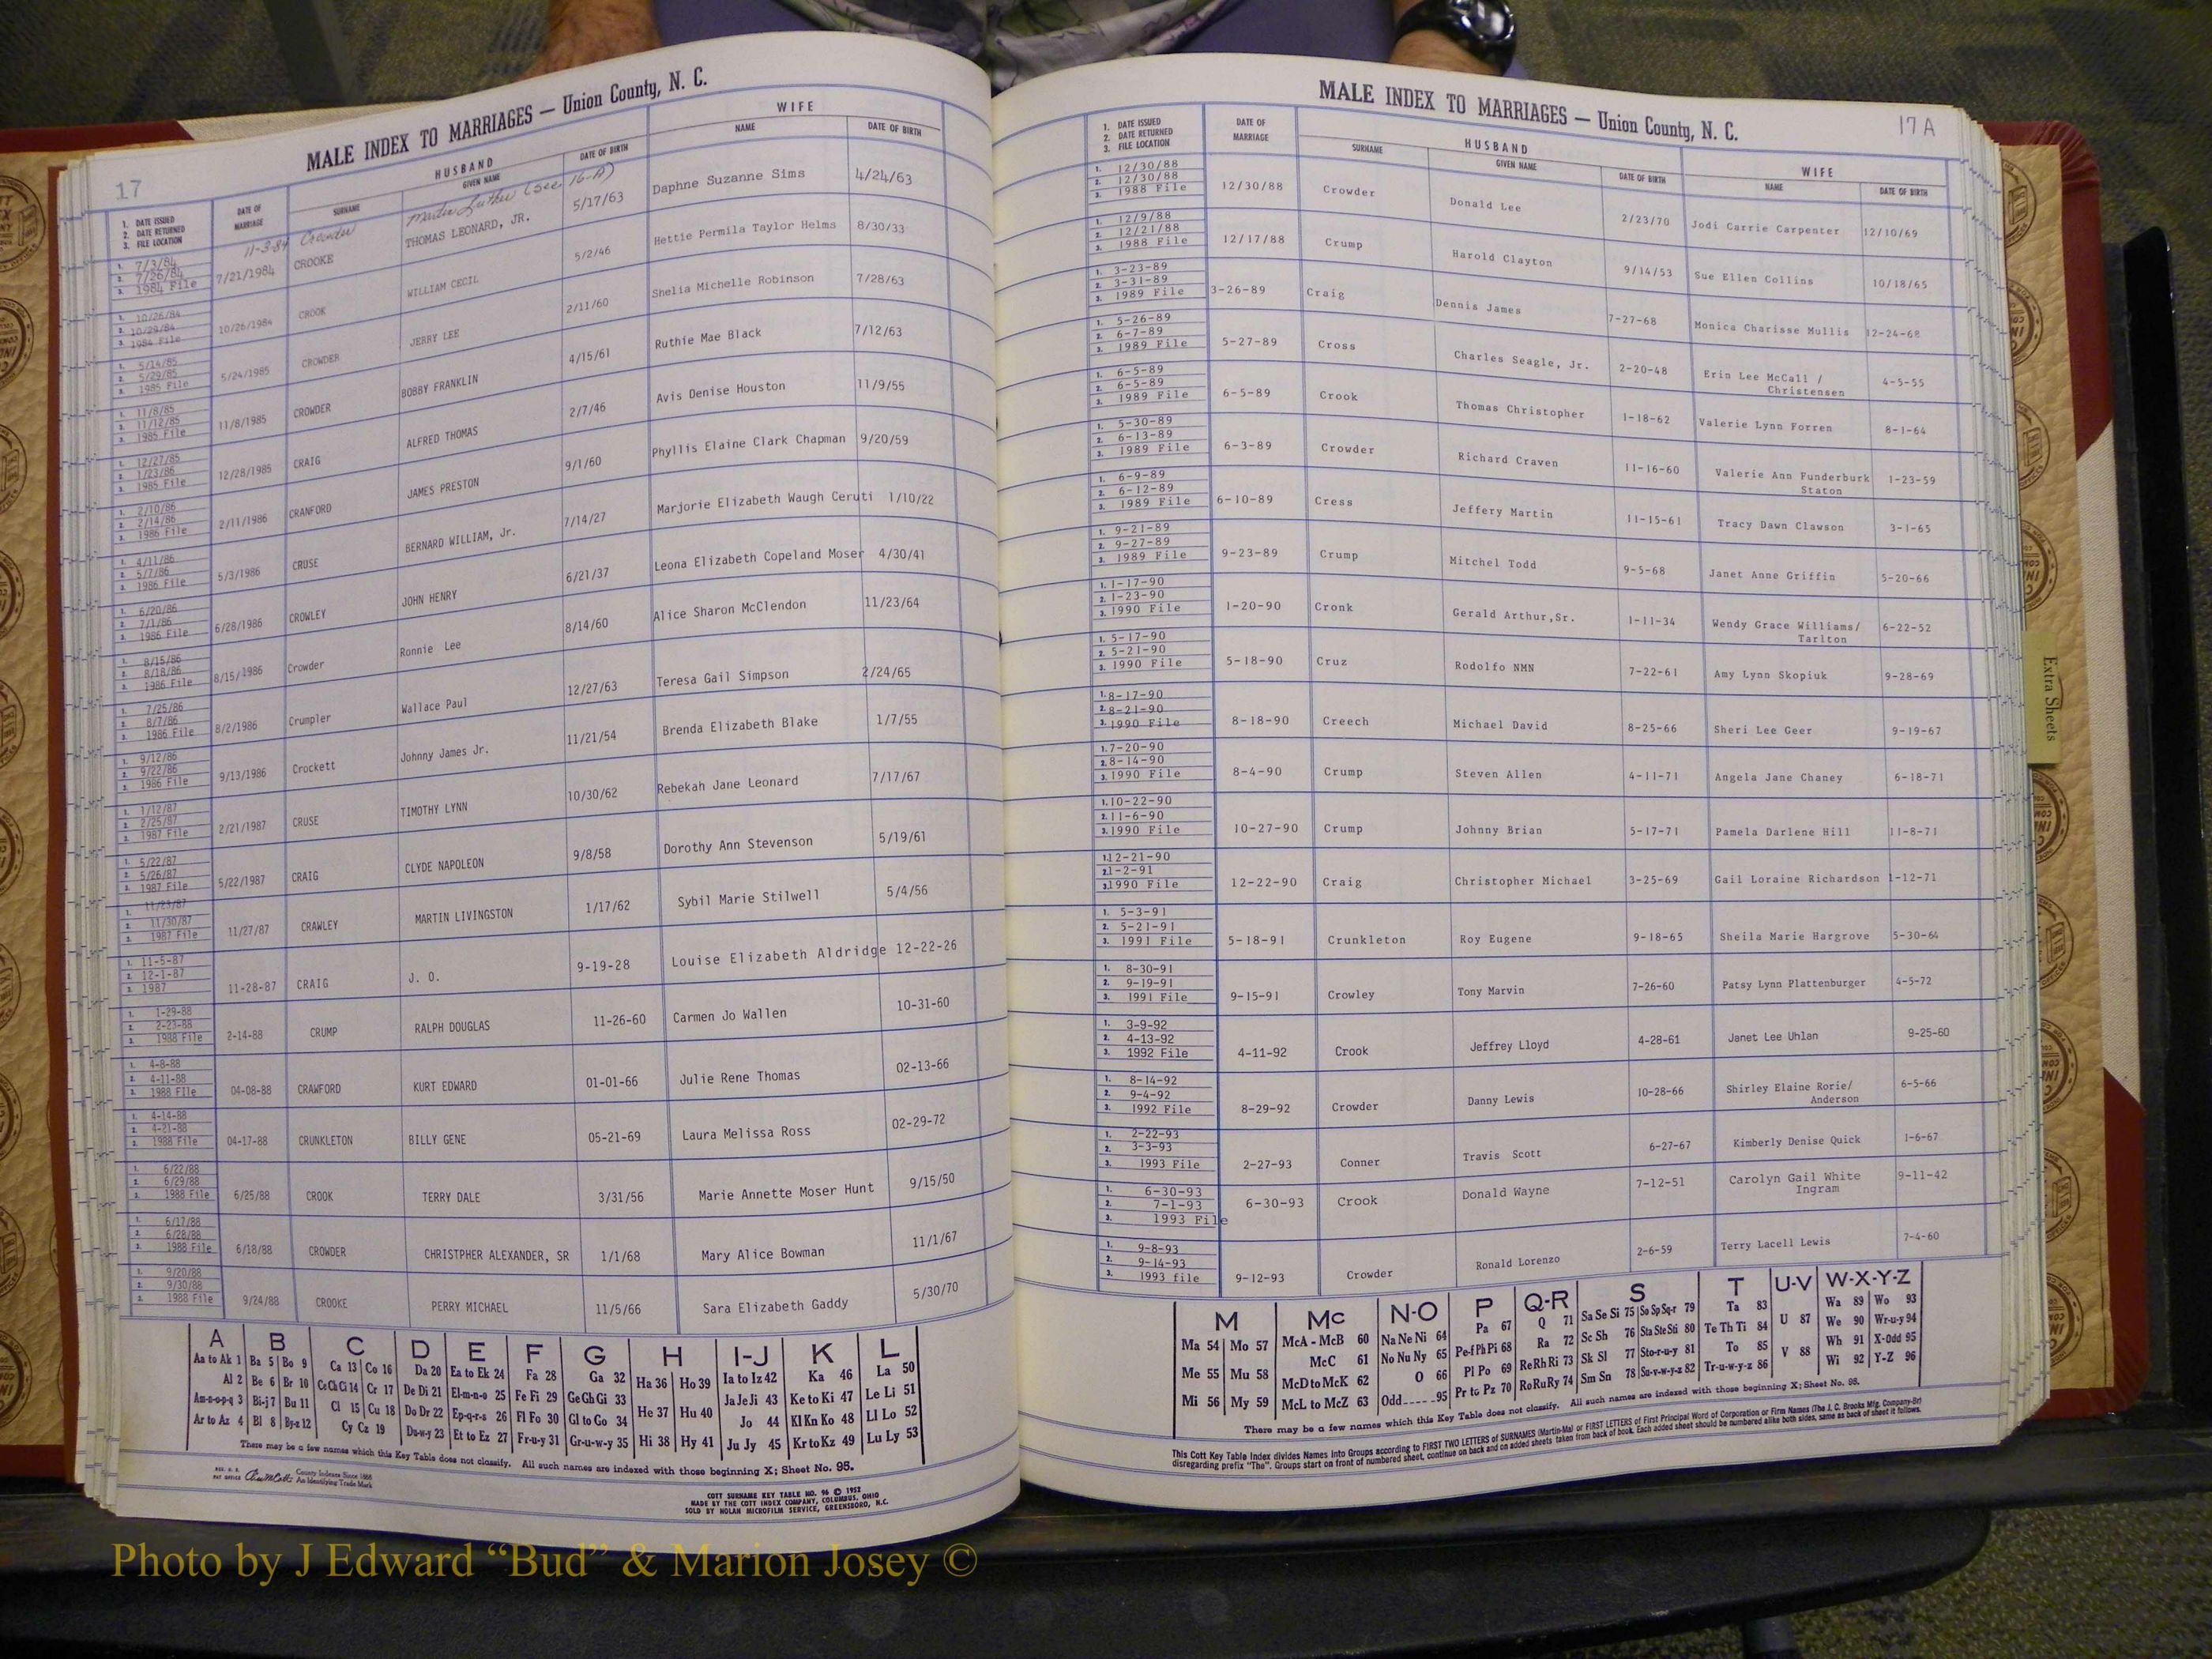 17
MALE INDEX TO MARRIAGES — Union County, N. C.
HUSBAND WIFE
1. DATE ISSUED 2. DATE RETURNED 3. FILE LOCATION DATE OF MARRIAGE SURNAME GIVEN NAME DATE OF BIRTH NAME DATE OF BIRTH
11-3-84 Crowder Martin Luther (See 16-A)
1. 7/3/84 2. 7/26/84 3. 1984 File 7/21/1984 CROOKE THOMAS LEONARD, JR. 5/17/63 Daphne Suzanne Sims 4/24/63
1. 10/26/84 2. 10/29/84 3. 1984 File 10/26/1984 CROOK WILLIAM CECIL 5/2/46 Hettie Permila Taylor Helms 8/30/33
1. 5/14/85 2. 5/29/85 3. 1985 File 5/24/1985 CROWDER JERRY LEE 2/11/60 Shelia Michelle Robinson 7/28/63
1. 11/8/85 2. 11/12/85 3. 1985 File 11/8/1985 CROWDER BOBBY FRANKLIN 4/15/61 Ruthie Mae Black 7/12/63
1. 12/27/85 2. 1/23/86 3. 1985 File 12/28/1985 CRAIG ALFRED THOMAS 2/7/46 Avis Denise Houston 11/9/55
1. 2/10/86 2. 2/14/86 3. 1986 File 2/11/1986 CRANFORD JAMES PRESTON 9/1/60 Phyllis Elaine Clark Chapman 9/20/59
1. 4/11/86 2. 5/7/86 3. 1986 File 5/3/1986 CRUSE BERNARD WILLIAM, Jr. 7/14/27 Marjorie Elizabeth Waugh Ceruti 1/10/22
1. 6/20/86 2. 7/1/86 3. 1986 File 6/28/1986 CROWLEY JOHN HENRY 6/21/37 Leona Elizabeth Copeland Moser 4/30/41
1. 8/15/86 2. 8/18/86 3. 1986 File 8/15/1986 Crowder Ronnie Lee 8/14/60 Alice Sharon McClendon 11/23/64
1. 7/25/86 2. 8/7/86 3. 1986 File 8/2/1986 Crumpler Wallace Paul 12/27/63 Teresa Gail Simpson 2/24/65
1. 9/12/86 2. 9/22/86 3. 1986 File 9/13/1986 Crockett Johnny James Jr. 11/21/54 Brenda Elizabeth Blake 1/7/55
1. 1/12/87 2. 2/25/87 3. 1987 File 2/21/1987 CRUSE TIMOTHY LYNN 10/30/62 Rebekah Jane Leonard 7/17/67
1. 5/22/87 2. 5/26/87 3. 1987 File 5/22/1987 CRAIG CLYDE NAPOLEON 9/8/58 Dorothy Ann Stevenson 5/19/61
1. 11/23/87 2. 11/30/87 3. 1987 File 11/27/87 CRAWLEY MARTIN LIVINGSTON 1/17/62 Sybil Marie Stilwell 5/4/56
1. 11-5-87 2. 12-1-87 3. 1987 11-28-87 CRAIG J. O. 9-19-28 Louise Elizabeth Aldridge 12-22-26
1. 1-29-88 2. 2-23-88 3. 1988 File 2-14-88 CRUMP RALPH DOUGLAS 11-26-60 Carmen Jo Wallen 10-31-60
1. 4-8-88 2. 4-11-88 3. 1988 File 04-08-88 CRAWFORD KURT EDWARD 01-01-66 Julie Rene Thomas 02-13-66
1. 4-14-88 2. 4-21-88 3. 1988 File 04-17-88 CRUNKLETON BILLY GENE 05-21-69 Laura Melissa Ross 02-29-72
1. 6/22/88 2. 6/29/88 3. 1988 File 6/25/88 CROOK TERRY DALE 3/31/56 Marie Annette Moser Hunt 9/15/50
1. 6/17/88 2. 6/28/88 3. 1988 File 6/18/88 CROWDER CHRISTPHER ALEXANDER, SR 1/1/68 Mary Alice Bowman 11/1/67
1. 9/20/88 2. 9/30/88 3. 1988 File 9/24/88 CROOKE PERRY MICHAEL 11/5/66 Sara Elizabeth Gaddy 5/30/70
A B C D E F G H I-J K L
Aa to Ak 1 Ba 5 Bo 9 Ca 13 Co 16 Da 20 Ea to Ek 24 Fa 28 Ga 32 Ha 36 Ho 39 Ia to Iz 42 Ka 46 La 50
Al 2 Be 6 Br 10 Ce Ch Ci 14 Cr 17 De Di 21 El-m-n-o 25 Fe Fi 29 Ge Gh Gi 33 He 37 Hu 40 Ja Je Ji 43 Ke to Ki 47 Le Li 51
Am-n-o-p-q 3 Bi-j 7 Bu 11 Cl 15 Cu 18 Do Dr 22 Ep-q-r-s 26 Fl Fo 30 Gl to Go 34 Jo 44 Kl Kn Ko 48 Ll Lo 52
Ar to Az 4 Bl 8 By-z 12 Cy Cz 19 Du-w-y 23 Et to Ez 27 Fr-u-y 31 Gr-u-w-y 35 Hi 38 Hy 41 Ju Jy 45 Kr to Kz 49 Lu Ly 53
There may be a few names which this Key Table does not classify. All such names are indexed with those beginning X; Sheet No. 95.
County Indexes Since 1888
An Identifying Trade Mark
COTT SURNAME KEY TABLE NO. 96 © 1952
MADE BY THE COTT INDEX COMPANY, COLUMBUS, OHIO
SOLD BY NOLAN MICROFILM SERVICE, GREENSBORO, N.C.
17A
MALE INDEX TO MARRIAGES — Union County, N. C.
HUSBAND WIFE
1. DATE ISSUED 2. DATE RETURNED 3. FILE LOCATION DATE OF MARRIAGE SURNAME GIVEN NAME DATE OF BIRTH NAME DATE OF BIRTH
1. 12/30/88 2. 12/30/88 3. 1988 File 12/30/88 Crowder Donald Lee 2/23/70 Jodi Carrie Carpenter 12/10/69
1. 12/9/88 2. 12/21/88 3. 1988 File 12/17/88 Crump Harold Clayton 9/14/53 Sue Ellen Collins 10/18/65
1. 3-23-89 2. 3-31-89 3. 1989 File 3-26-89 Craig Dennis James 7-27-68 Monica Charisse Mullis 12-24-68
1. 5-26-89 2. 6-7-89 3. 1989 File 5-27-89 Cross Charles Seagle, Jr. 2-20-48 Erin Lee McCall / Christensen 4-5-55
1. 6-5-89 2. 6-5-89 3. 1989 File 6-5-89 Crook Thomas Christopher 1-18-62 Valerie Lynn Forren 8-1-64
1. 5-30-89 2. 6-13-89 3. 1989 File 6-3-89 Crowder Richard Craven 11-16-60 Valerie Ann Funderburk Staton 1-23-59
1. 6-9-89 2. 6-12-89 3. 1989 File 6-10-89 Cress Jeffery Martin 11-15-61 Tracy Dawn Clawson 3-1-65
1. 9-21-89 2. 9-27-89 3. 1989 File 9-23-89 Crump Mitchel Todd 9-5-68 Janet Anne Griffin 5-20-66
1. 1-17-90 2. 1-23-90 3. 1990 File 1-20-90 Cronk Gerald Arthur,Sr. 1-11-34 Wendy Grace Williams/ Tarlton 6-22-52
1. 5-17-90 2. 5-21-90 3. 1990 File 5-18-90 Cruz Rodolfo NMN 7-22-61 Amy Lynn Skopiuk 9-28-69
1. 8-17-90 2. 8-21-90 3. 1990 File 8-18-90 Creech Michael David 8-25-66 Sheri Lee Geer 9-19-67
1. 7-20-90 2. 8-14-90 3. 1990 File 8-4-90 Crump Steven Allen 4-11-71 Angela Jane Chaney 6-18-71
1. 10-22-90 2. 11-6-90 3. 1990 File 10-27-90 Crump Johnny Brian 5-17-71 Pamela Darlene Hill 11-8-71
1. 12-21-90 2. 1-2-91 3. 1990 File 12-22-90 Craig Christopher Michael 3-25-69 Gail Loraine Richardson 1-12-71
1. 5-3-91 2. 5-21-91 3. 1991 File 5-18-91 Crunkleton Roy Eugene 9-18-65 Sheila Marie Hargrove 5-30-64
1. 8-30-91 2. 9-19-91 3. 1991 File 9-15-91 Crowley Tony Marvin 7-26-60 Patsy Lynn Plattenburger 4-5-72
1. 3-9-92 2. 4-13-92 3. 1992 File 4-11-92 Crook Jeffrey Lloyd 4-28-61 Janet Lee Uhlan 9-25-60
1. 8-14-92 2. 9-4-92 3. 1992 File 8-29-92 Crowder Danny Lewis 10-28-66 Shirley Elaine Rorie/ Anderson 6-5-66
1. 2-22-93 2. 3-3-93 3. 1993 File 2-27-93 Conner Travis Scott 6-27-67 Kimberly Denise Quick 1-6-67
1. 6-30-93 2. 7-1-93 3. 1993 File 6-30-93 Crook Donald Wayne 7-12-51 Carolyn Gail White Ingram 9-11-42
1. 9-8-93 2. 9-14-93 3. 1993 file 9-12-93 Crowder Ronald Lorenzo 2-6-59 Terry Lacell Lewis 7-4-60
M Mc N-O P Q-R S T U-V W-X-Y-Z
Ma 54 Mo 57 McA - McB 60 Na Ne Ni 64 Pa 67 Q 71 Sa Se Si 75 So Sp Sq-r 79 Ta 83 U 87 Wa 89 Wo 93
Me 55 Mu 58 McC 61 No Nu Ny 65 Pe-f Ph Pi 68 Ra 72 Sc Sh 76 Sta Ste Sti 80 Te Th Ti 84 We 90 Wr-u-y 94
McD to McK 62 O 66 Pl Po 69 Re Rh Ri 73 Sk Sl 77 Sto-r-u-y 81 To 85 V 88 Wh 91 X-Odd 95
Mi 56 My 59 McL to McZ 63 Odd 95 Pr to Pz 70 Ro Ru Ry 74 Sm Sn 78 Su-v-w-y-z 82 Tr-u-w-y-z 86 Wi 92 Y-Z 96
There may be a few names which this Key Table does not classify. All such names are indexed with those beginning X; Sheet No. 95.
This Cott Key Table Index divides Names into Groups according to FIRST TWO LETTERS of SURNAMES (Martin-Ma) or FIRST LETTERS of First Principal Word of Corporation or Firm Names (The J. C. Brooks Mfg. Company-Br)
disregarding prefix "The". Groups start on front of numbered sheet, continue on back and on added sheets taken from back of book. Each added sheet should be numbered alike both sides, same as back of sheet it follows.
Extra Sheets
Photo by J Edward “Bud” & Marion Josey ©